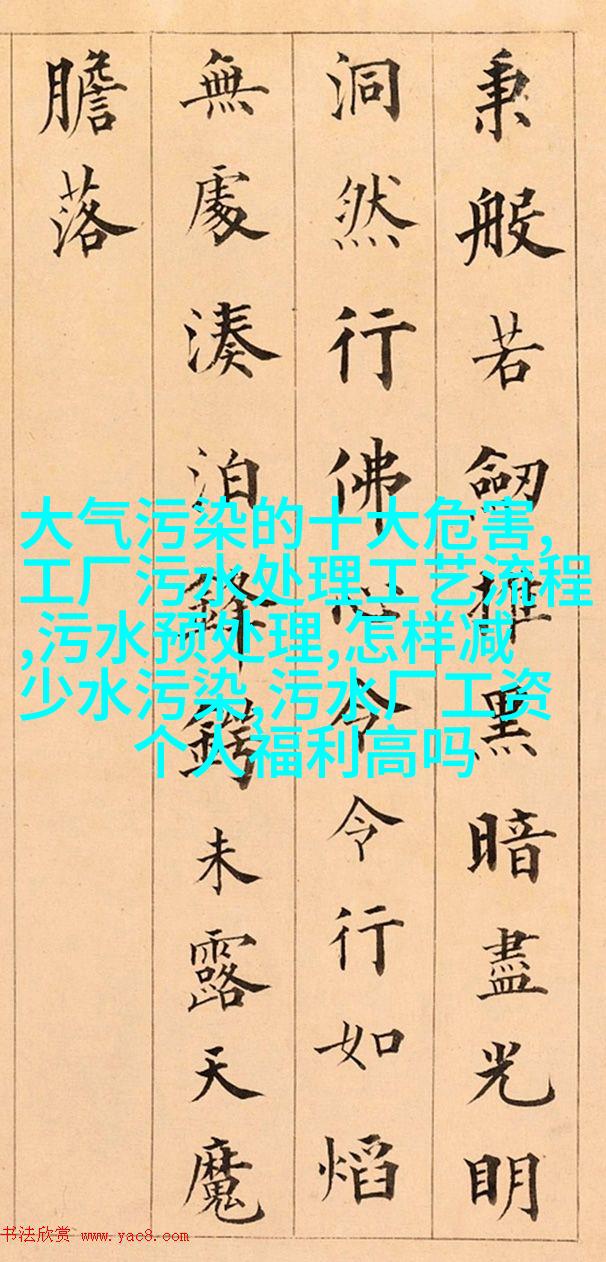 秉般若劒摧黑暗盡光明
洞然行佛心令令行如焰
無處湊泊鋒鍔未露天魔
膽落
大气污染的十大危害,
工厂污水处理工艺流程
,污水预处理,怎样减
少水污染,污水厂工资
个人福利高吗
书法欣赏 www.yac8.com